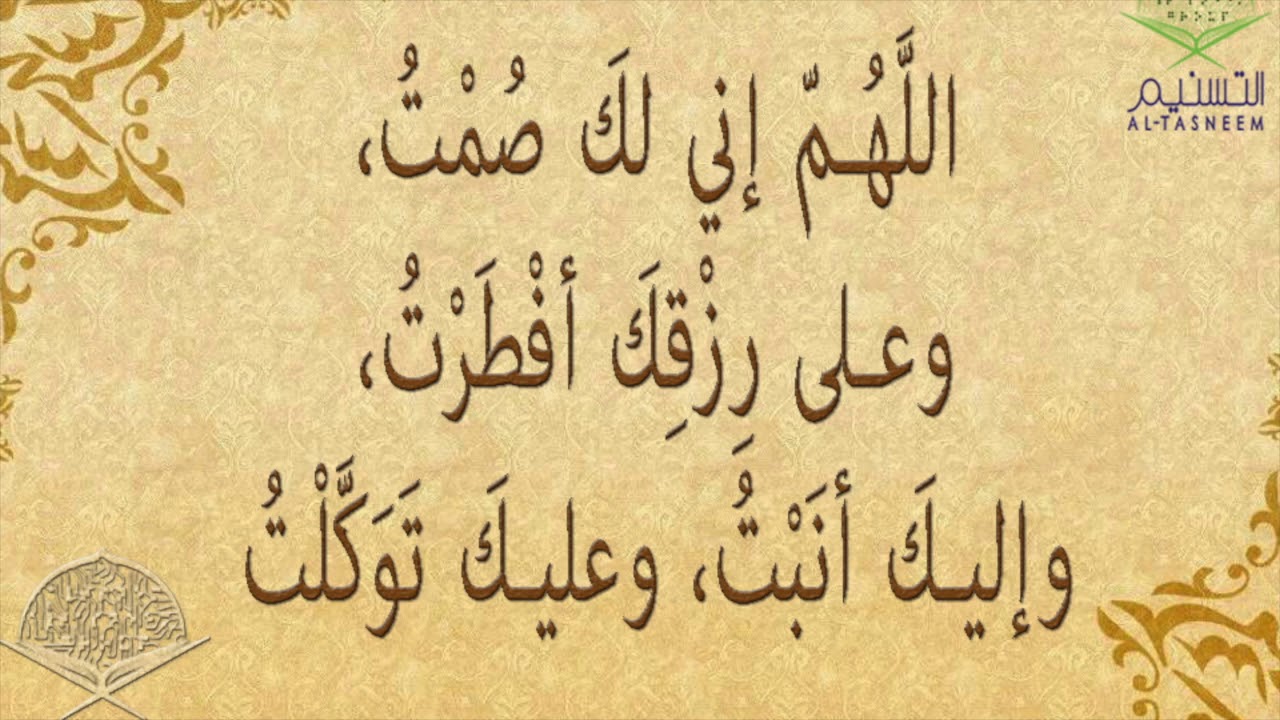 التسنيم
AL-TASNEEM
اللَّهُمّ إني لكَ صُمْتُ،
وعلى رِزْقِكَ أفْطَرْتُ،
وإليكَ أنَبْتُ، وعليكَ تَوَكَّلْتُ